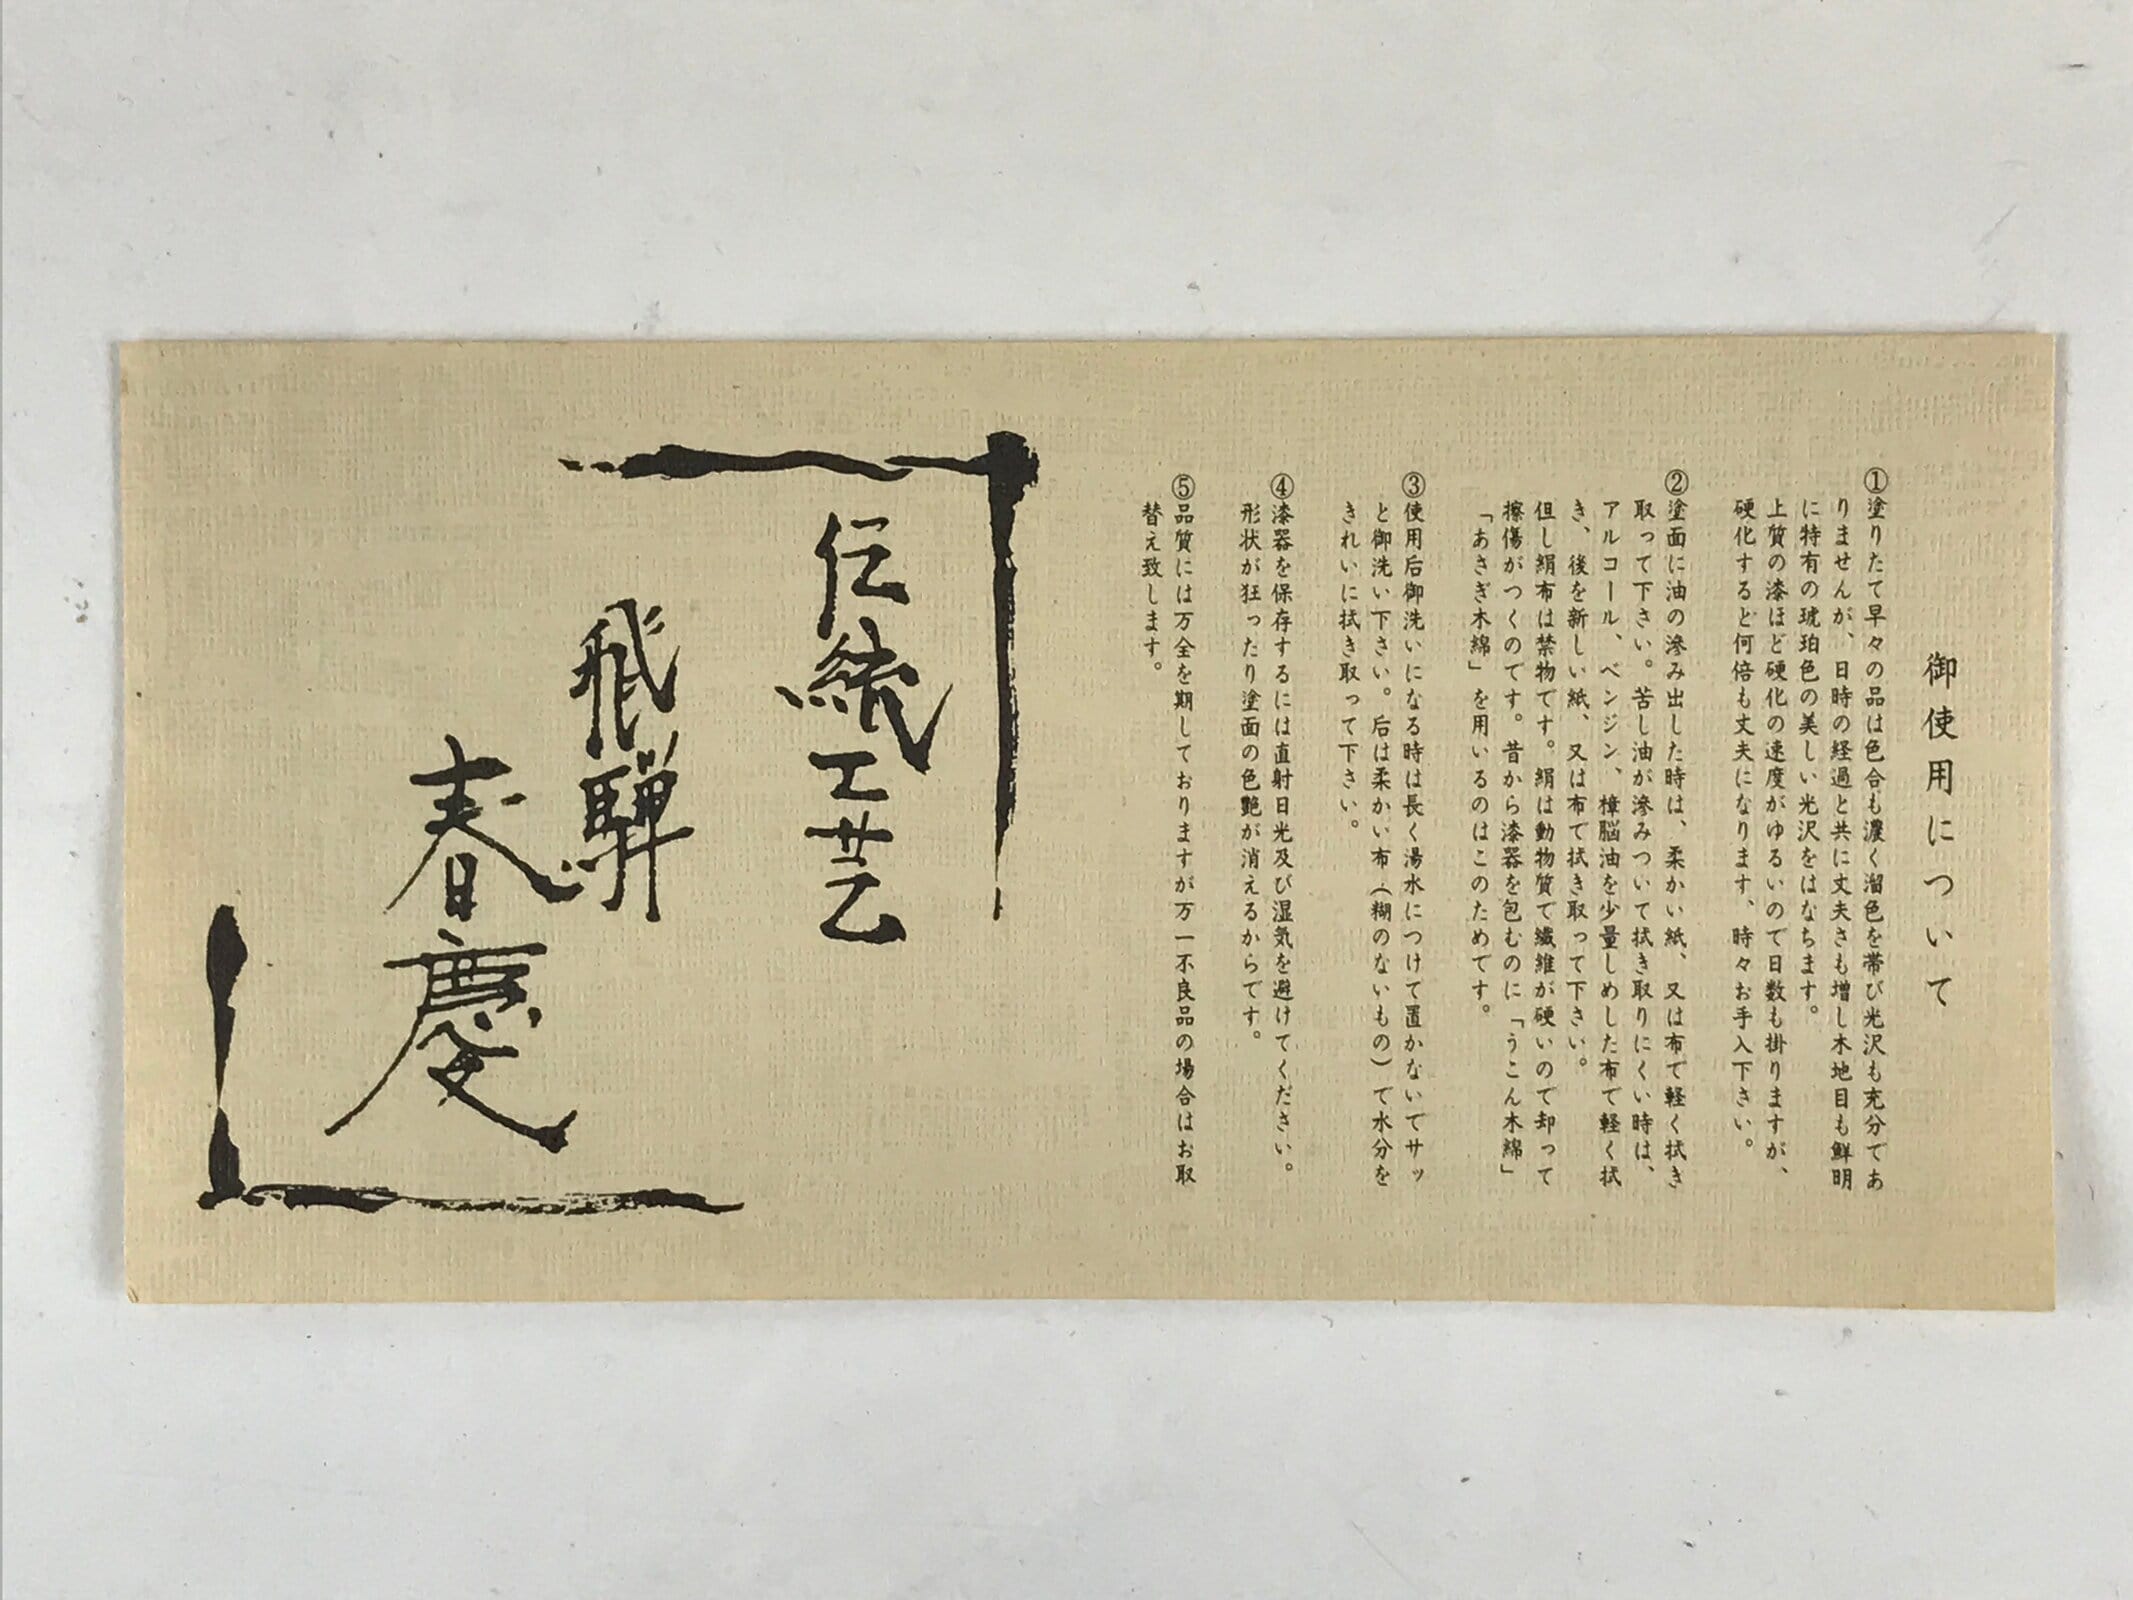 御使用について
①塗りたて早々の品は色合も濃く溜色を帯び光沢も充分であ
りませんが、日時の経過と共に丈夫さも増し木地目も鮮明
に特有の琥珀色の美しい光沢をはなちます。
上質の漆ほど硬化の速度がゆるいので日数も掛りますが、
硬化すると何倍も丈夫になります、時々お手入下さい。
②塗面に油の滲み出した時は、柔かい紙、又は布で軽く拭き
取って下さい。苦し油が滲みついて拭き取りにくい時は、
アルコール、ベンジン、樟脳油を少量しめした布で軽く拭
き、後を新しい紙、又は布で拭き取って下さい。
但し絹布は禁物です。絹は動物質で繊維が硬いので却って
擦傷がつくのです。昔から漆器を包むのに「うこん木綿」
「あさぎ木綿」を用いるのはこのためです。
③使用后御洗いになる時は長く湯水につけて置かないでサッ
と御洗い下さい。后は柔かい布(糊のないもの)で水分を
きれいに拭き取って下さい。
④漆器を保存するには直射日光及び湿気を避けてください。
形状が狂ったり塗面の色艶が消えるからです。
⑤品質には万全を期しておりますが万一不良品の場合はお取
替え致します。
伝統工芸
飛騨
春慶